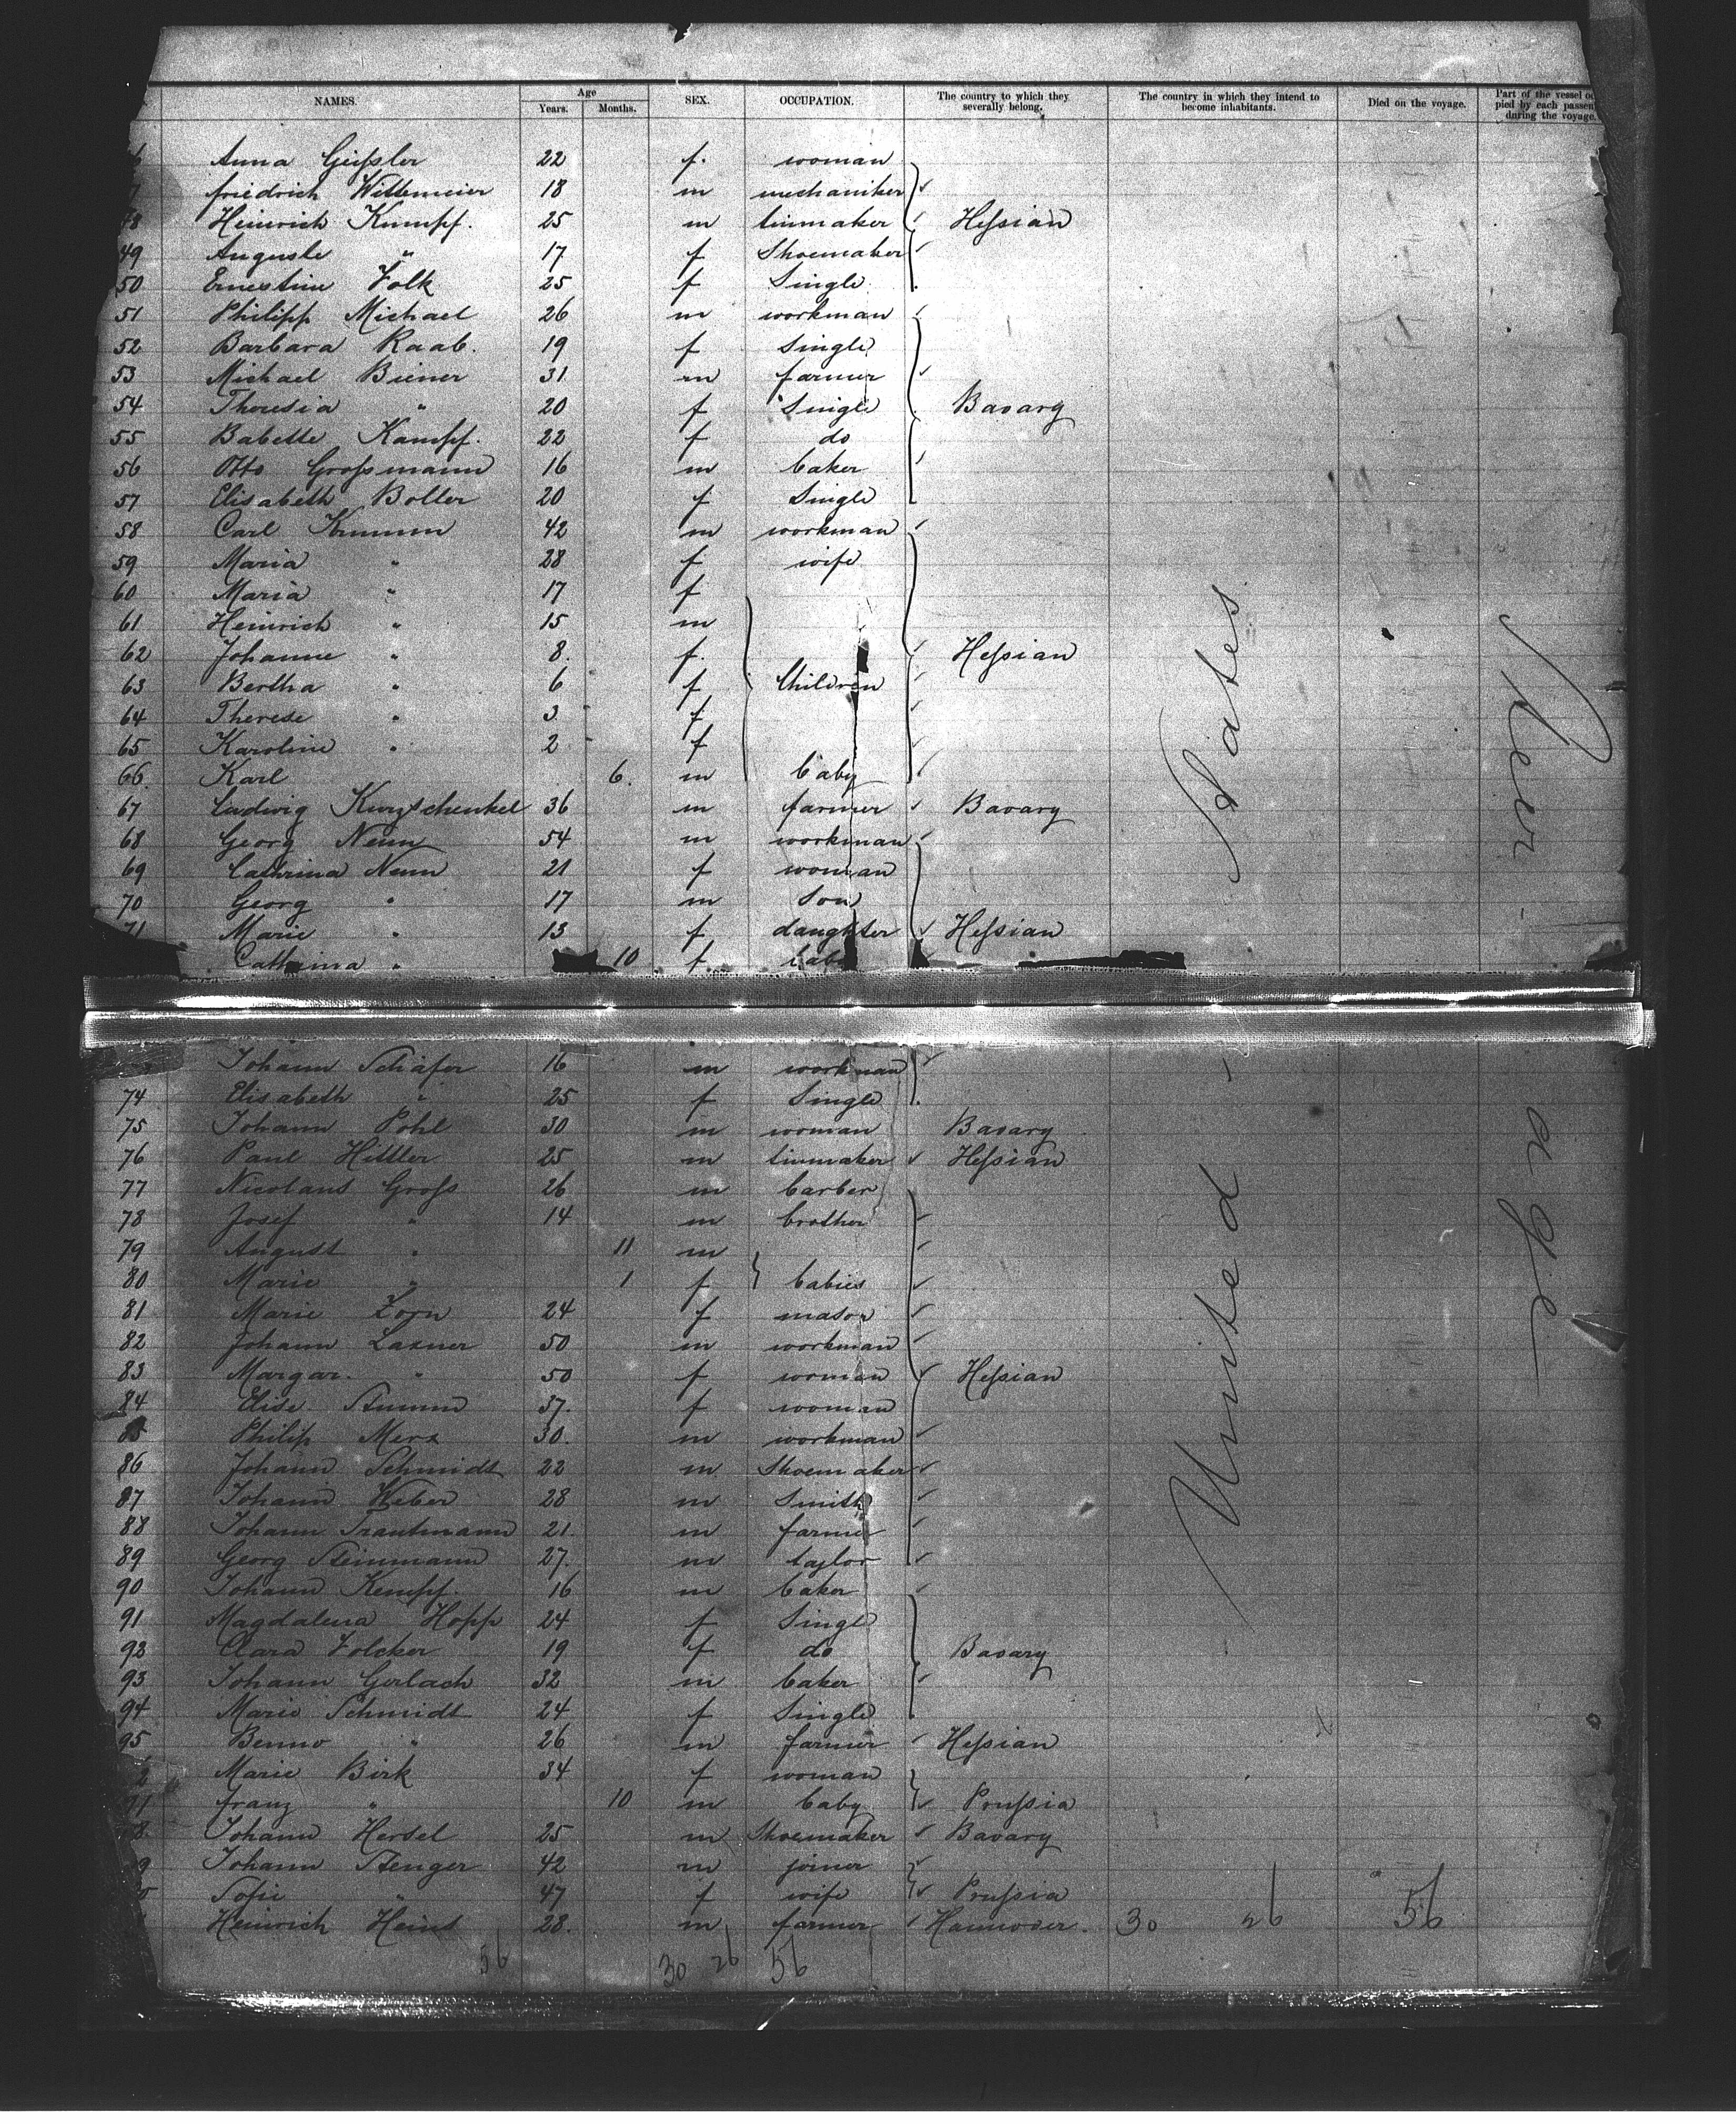 NAMES. Age Years. Months. SEX. OCCUPATION. The country to which they severally belong. The country in which they intend to become inhabitants. Died on the voyage. Part of the vessel oc pied by each passen during the voyage.
6 Anna Geißler 22 f. woman
7 friedrich Wittemeier 18 m mechaniker
48 Heinrich Kumpf. 25 m tinmaker Heßian
49 Auguste " 17 f Shoemaker
50 Ernestine Volk 25 f Single
51 Philipp Michael 26 m workman
52 Barbara Raab. 19 f Single
53 Michael Biener 31 m farmer
54 Theresia " 20 f Single Bavary
55 Babette Kampf. 22 f do
56 Otto Großmann 16 m baker
57 Elisabeth Boller 20 f Single
58 Carl Krumm 42 m workman
59 Maria " 28 f wife
60 Maria " 17 f
61 Heinrich " 15 m
62 Johanne " 8. f. Heßian
63 Bertha " 6 f Children
64 Therese " 3 f
65 Karoline " 2 f
66. Karl 6. m baby
67 Ludwig Kurzschenkel 36 m farmer Bavary
68 Georg Nenn 54 m workman
69 Cathrina Nenn 21 f woman
70 Georg " 17 m Son
71 Marie " 13 f daughter Heßian
Cathrina " 10 f. bab
Johann Schäfer 16 m workman
74 Elisabeth " 25 f Single
75 Johann Pohl 30 m woman Bavary
76 Paul Hittler 25 m tinmaker Heßian
77 Nicolaus Groß 26 m barber
78 Josef " 14 m brother
79 August " 11 m
80 Marie " 1 f babies
81 Marie Zorn 24 f mason
82 Johann Laxner 50 m workman
83 Margar. " 50 f woman Heßian
84 Elise. Stumm 37. f woman
85 Philip Merx 30. m workman
86 Johann Schmidt 22 m Shoemaker
87 Johann Weber 28 m Smith
88 Johann Trautmann 21. m farmer
89 Georg Steinmann 27. m taylor
90 Johann Kempf. 16 m baker
91 Magdalena Hopp 24 f Single
92 Clara Volcker 19 f do Bavary
93 Johann Gerlach 32 m baker
94 Marie Schmidt 24 f Single
95 Benno " 26 m farmer Heßian
Marie Birk 34 f woman
franz " 10 m baby Prußia
8 Johann Hersel 25 m Shoemaker Bavary
9 Johann Stenger 42 m joiner
Sofie " 47 f wife Prußia
Heinrich Heins 28. m farmer Hannover. 30 26 56
56 30 26 56
United States
Steer-age